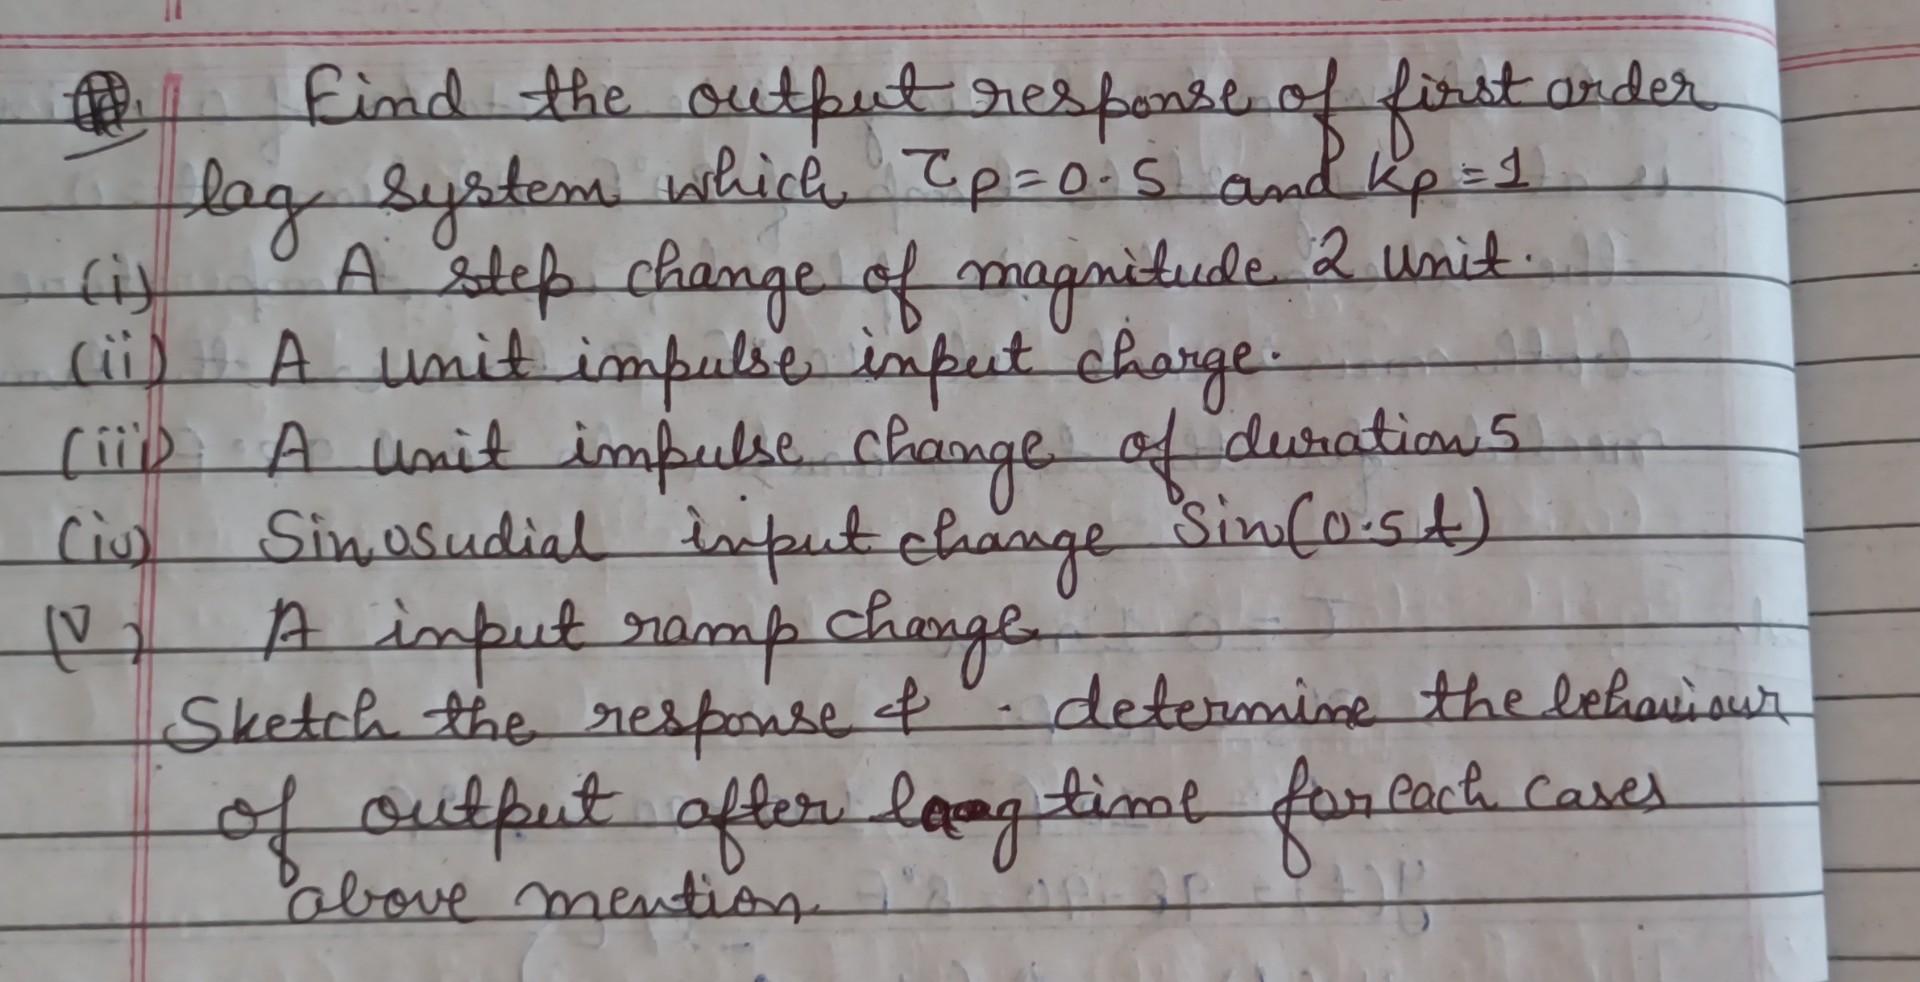 Find the output response of first order
lag system which τp=0.5 and kp=1
(i) A step change of magnitude 2 unit.
(ii) A unit impulse input change.
(iii) A unit impulse change of duration 5
(iv) Sinosudial input change Sin(0.5t)
(v) A input ramp change
Sketch the response & determine the behaviour
of output after long time for each cases
above mention.